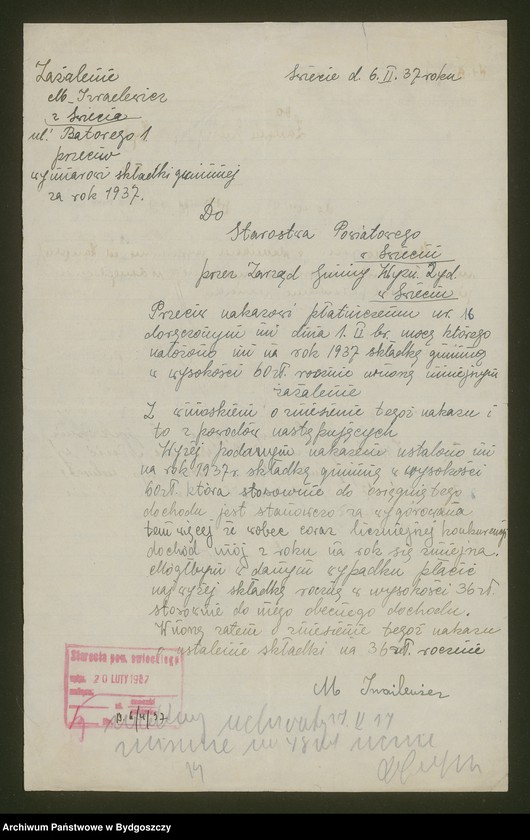 Zażalenie
M. Izraelewicz
z Świecia
ul. Batorego 1.
przeciw
wymiarowi składki gminnej
za rok 1937.
Świecie d. 6. II. 37 roku
Do
Starostwa Powiatowego
w Świeciu
przez Zarząd Gminy Wyzn. Żyd.
w Świeciu
Przeciw nakazowi płatniczemu nr. 16
doręczonym mi dnia 1. II br. mocą którego
nałożono mi na rok 1937 składkę gminną
w wysokości 60 zł. rocznie wnoszę niniejszym
zażalenie
Z wnioskiem o zniesienie tegoż nakazu i
to z powodów następujących
Wyżej podanym nakazem ustalono mi
na rok 1937 r. składkę gminną w wysokości
60 zł. która stosownie do osiągniętego
dochodu jest stanowczo za wygórowana
tem więcej że wobec coraz liczniejszej konkurencji
dochód mój z roku na rok się zmniejsza.
Mógłbym w danym wypadku płacić
najwyżej składkę roczną w wysokości 36 zł.
stosownie do mego obecnego dochodu.
Wnoszę zatem o zniesienie tegoż nakazu
a ustalenie składki na 36 zł. rocznie
M
Starosta pow. świeckiego
20 LUTY 1937
Archiwum Państwowe w Bydgoszczy